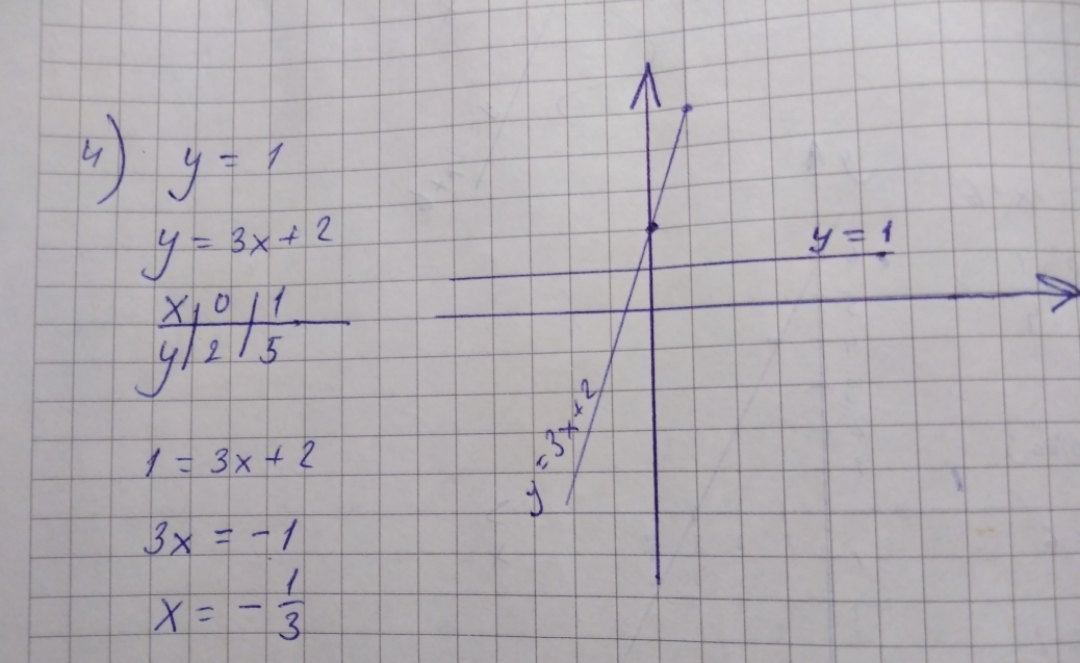 4) y = 1
y = 3x + 2
x | 0 | 1
y | 2 | 5
1 = 3x + 2
3x = -1
x = - 1/3
y = 1
y = 3x + 2